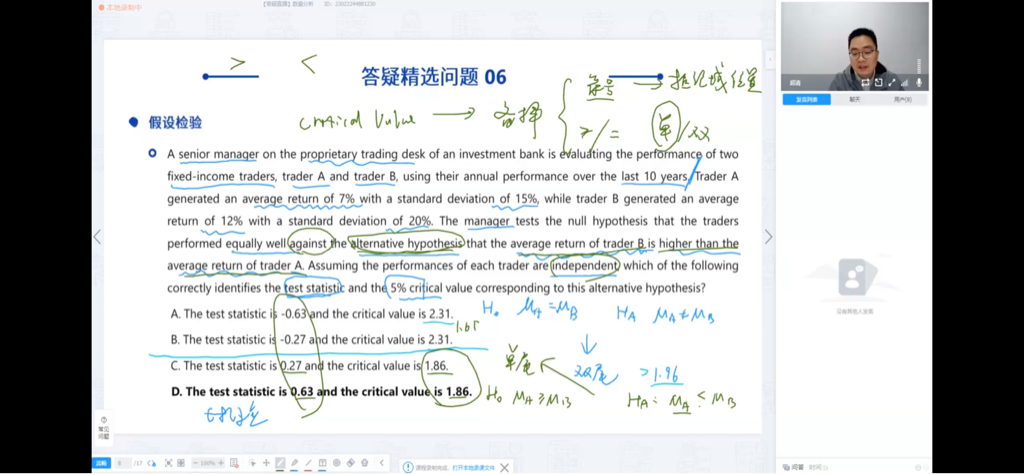 本地录制中
【答疑直播】数量分析
> <
答疑精选问题 06
critical value → 选择
符号 → 拒绝域位置
>/= 单/双
假设检验
A senior manager on the proprietary trading desk of an investment bank is evaluating the performance of two
fixed-income traders, trader A and trader B, using their annual performance over the last 10 years. Trader A
generated an average return of 7% with a standard deviation of 15%, while trader B generated an average
return of 12% with a standard deviation of 20%. The manager tests the null hypothesis that the traders
performed equally well against the alternative hypothesis that the average return of trader B is higher than the
average return of trader A. Assuming the performances of each trader are independent, which of the following
correctly identifies the test statistic and the 5% critical value corresponding to this alternative hypothesis?
A. The test statistic is -0.63 and the critical value is 2.31.
H₀ μA=μB HA μA≠μB
1.65
B. The test statistic is -0.27 and the critical value is 2.31.
C. The test statistic is 0.27 and the critical value is 1.86.
单尾 双尾 >1.96
D. The test statistic is 0.63 and the critical value is 1.86.
H₀ μA≥μB HA: μA<μB
常见
问题
8 /17
100%
课程录制完成，打开本地录课文件
发言列表
聊天
用户(9)
问答